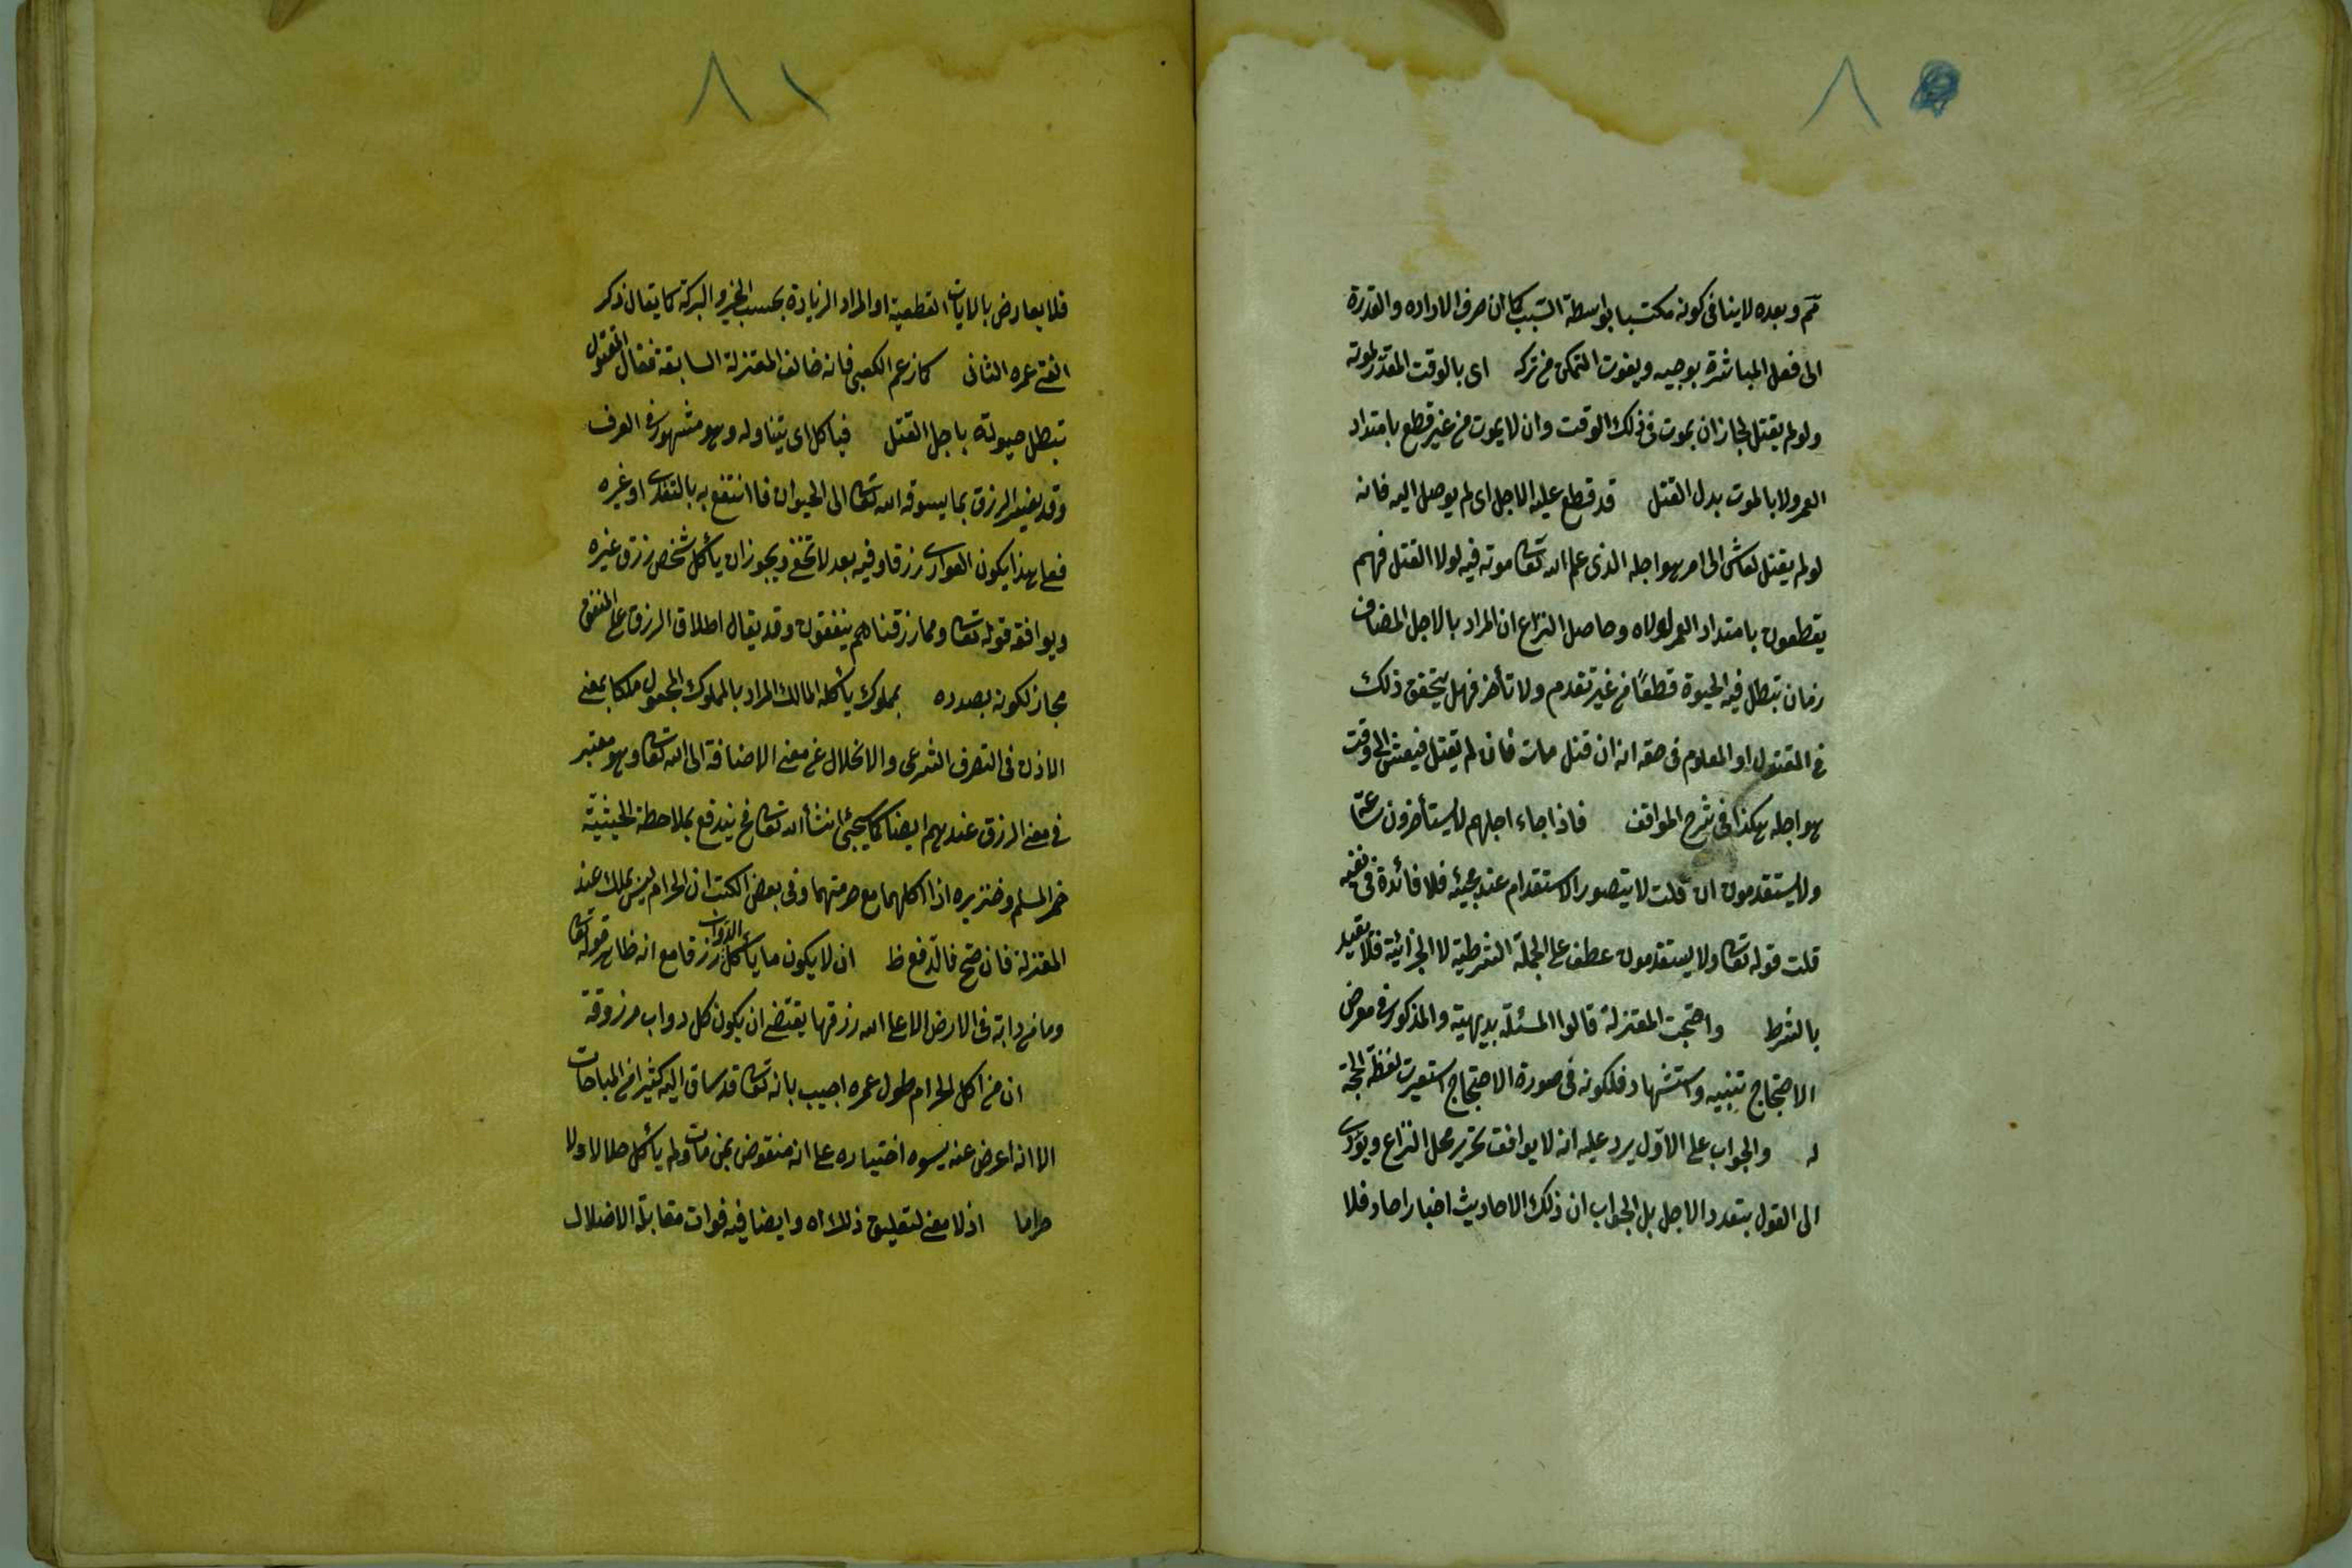 ٨٠
ثم وبعده لا ينافى كونه مكتسبا بواسطة السبب كما ان صرف الاراده والقدرة
الى فعل المباشرة يوجبه ويفوت التمكن من تركه اى بالوقت المقدر لموته
ولو لم يقتل لجاز ان يموت فى ذلك الوقت وان لا يموت من غير قطع بامتداد
العمر ولا بالموت بدل القتل قد قطع عليه الاجل اى لم يوصل اليه فانه
لو لم يقتل لعاش الى امد هو اجله الذى علم الله تعا موته فيه لولا القتل فهم
يقطعون بامتداد العمر لولاه وحاصل النزاع ان المراد بالاجل المضاف
زمان تبطل فيه الحيوة قطعًا من غير تقدم ولا تأخر فهل يتحقق ذلك
فى المقتول او المعلوم فى حقه انه ان قتل مات فان لم يقتل فيعش الى وقت
هو اجله هكذا فى شرح المواقف فاذا جاء اجلهم لا يستأخرون ساعة
ولا يستقدمون ان قلت لا يتصور الاستقدام عند مجيئه فلا فائدة فى نفيه
قلت قوله تعا ولا يستقدمون عطف على الجملة الشرطية لا الجزائية فلا يتقيد
بالشرط واحتجت المعتزلة قالوا المسئلة بديهية والمذكور فى معرض
الاحتجاج تنبيه واستشهاد فلكونه فى صورة الاحتجاج استعيرت لفظة الحجة
له والجواب على الاول يرد عليه انه لا يوافق تحرير محل النزاع ويؤدى
الى القول بتعدد الاجل بل الجواب ان ذلك الاحاديث اخبار احاد فلا
٨١
فلا يعارض بالايات القطعية او المراد الزيادة بحسب الخير والبركة كما يقال ذكر
الفتى عمره الثانى كما زعم الكعبى فانه خالف المعتزلة السابقة فقال المقتول
تبطل حيوته باجل القتل فيأكل اى يتناوله وهو مشهور فى العرف
وقد يفسر الرزق بما يسوقه الله تعا الى الحيوان فانتفع به بالتغدى او غيره
فعلى هذا يكون العوارى رزقا وفيه بعد لا تخفى ويجوز ان يأكل شخص رزق غيره
ويوافقه قوله تعا ومما رزقناهم ينفقون وقد يقال اطلاق الرزق على المنفق
مجاز لكونه بصدده بمملوك يأكله المالك المراد بالمملوك المجعول ملكا بمعنى
الاذن فى التصرف الشرعى والا لخلا عن معنى الاضافة الى الله تعا وهو معتبر
فى معنى الرزق عندهم ايضا كما سيجئ انشأ الله تعا فح يندفع بملاحظة الحيثية
خمر المسلم وخنزيره اذا اكلهما مع حرمتهما وفى بعض الكتب ان الحرام ليس بملك عند
المعتزلة فان صح فالدفع ظ ان لا يكون ما يأكل الدواب رزقا مع انه ظاهر قوله تعا
وما من دابة فى الارض الا على الله رزقها يقتضى ان يكون كل دواب مرزوقة
ان من اكل الحرام طول عمره اجيب بانه تعا قد ساق اليه كثيرا من المباحات
الا انه اعرض عنه بسوء اختياره على انه منقوض بمن مات ولم يأكل حلالا ولا
حراما اذ لا معنى لتعليق ذلك اه وايضا فيه فوات مقابلة الاضلال